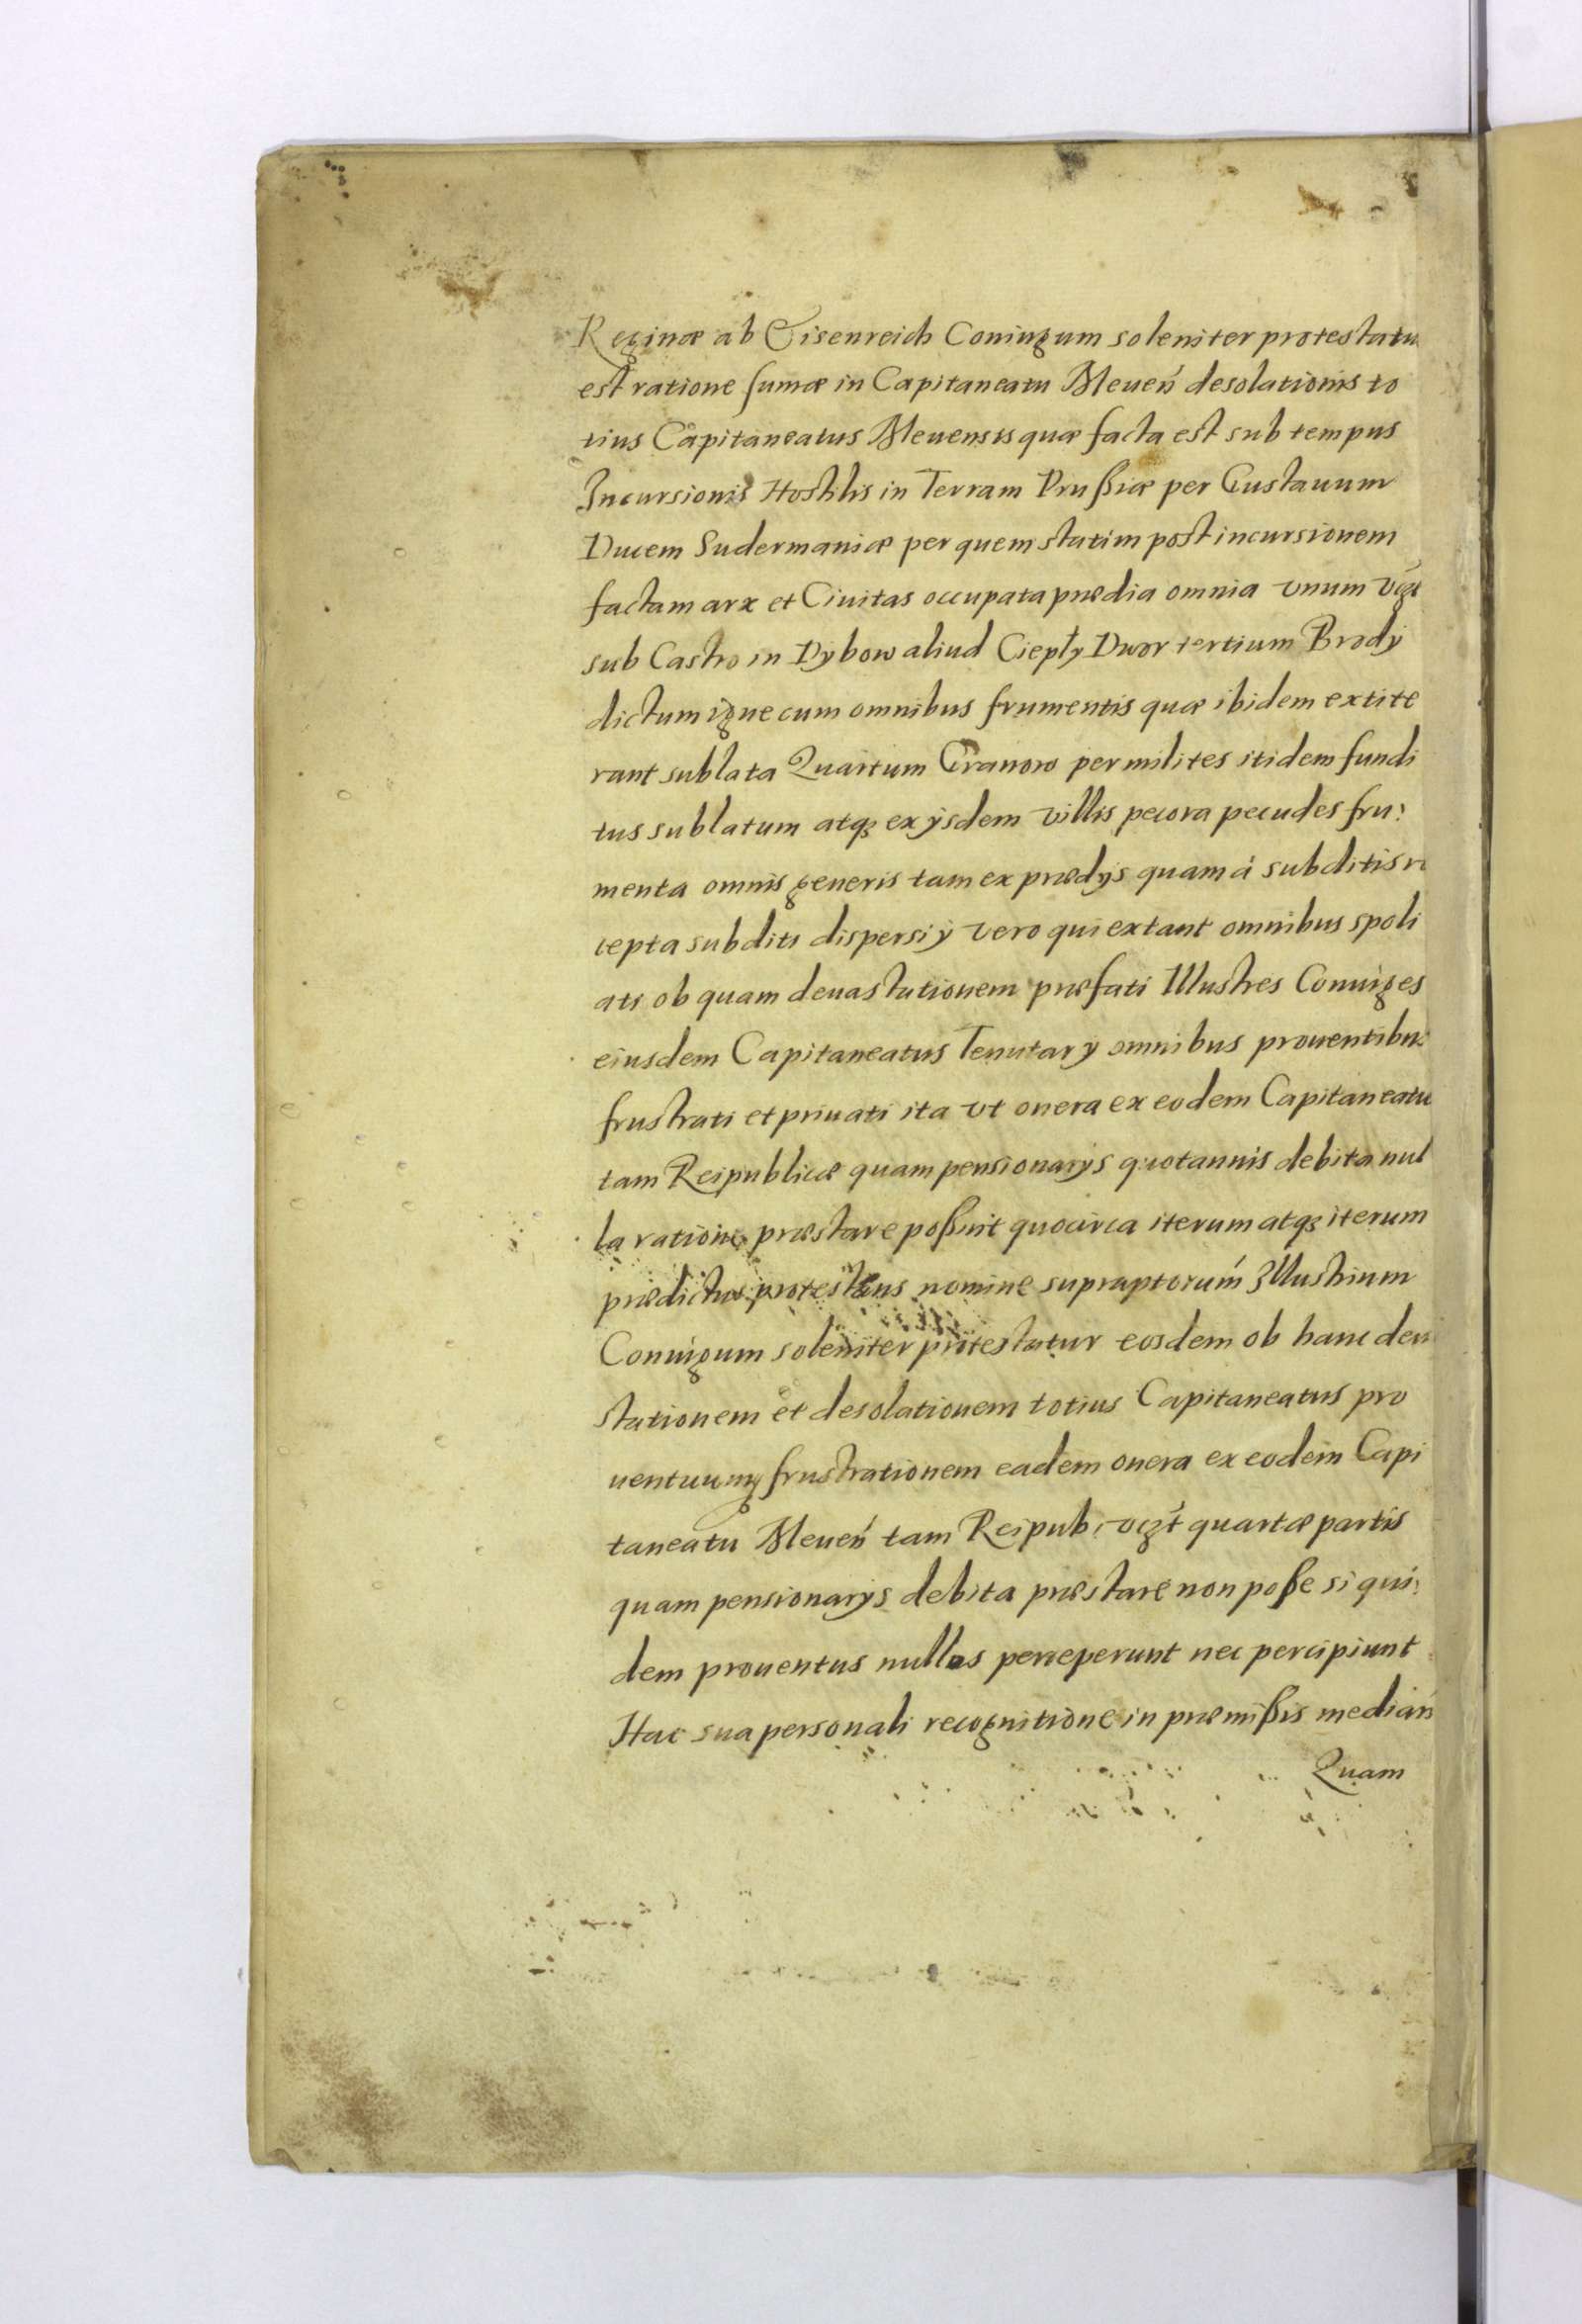 Reginæ ab Eisenreich Coniugum soleniter protestatu
est ratione sumæ in Capitaneatu Meueń desolationis to
tius Capitaneatus Meuensis quæ facta est sub tempus
Incursionis Hostilis in Terram Prußiæ per Gustauum
Ducem Sudermaniæ per quem statim post incursionem
factam arx et Ciuitas occupata prædia omnia vnum vcꝫt
sub Castro in Dybow aliud Ciepły Dwor tertium Brody
dictum igne cum omnibus frumentis quæ ibidem extite
rant sublata Quartum Gronowo per milites itidem fundi
tus sublatum atqꝫ ex ijsdem villis pecora pecudes fru:
menta omnis generis tam ex prædijs quam á subditis re
cepta subditi dispersi ij vero qui extant omnibus spoli
ati ob quam deuastationem præfati Illustres Coniuges
eiusdem Capitaneatus Tenutarij omnibus prouentibus
frustrati et priuati ita vt onera ex eodem Capitaneatu
tam Reipublicæ quam pensionarijs quotannis debita nul
la ratione præstare poßint quocirca iterum atqꝫ iterum
prædictus protestans nomine supraptorum Illustrium
Coniugum soleniter protestatur eosdem ob hanc deu
stationem et desolationem totius Capitaneatus pro
uentuumqꝫ frustrationem eadem onera ex eodem Capi
taneatu Meueń tam Reipub: vcꝫt quartæ partis
quam pensionarijs debita præstare non poße si qui:
dem prouentus nullos perceperunt nec percipiunt
Hac sua personali recognitione in præmißis mediań
Quam